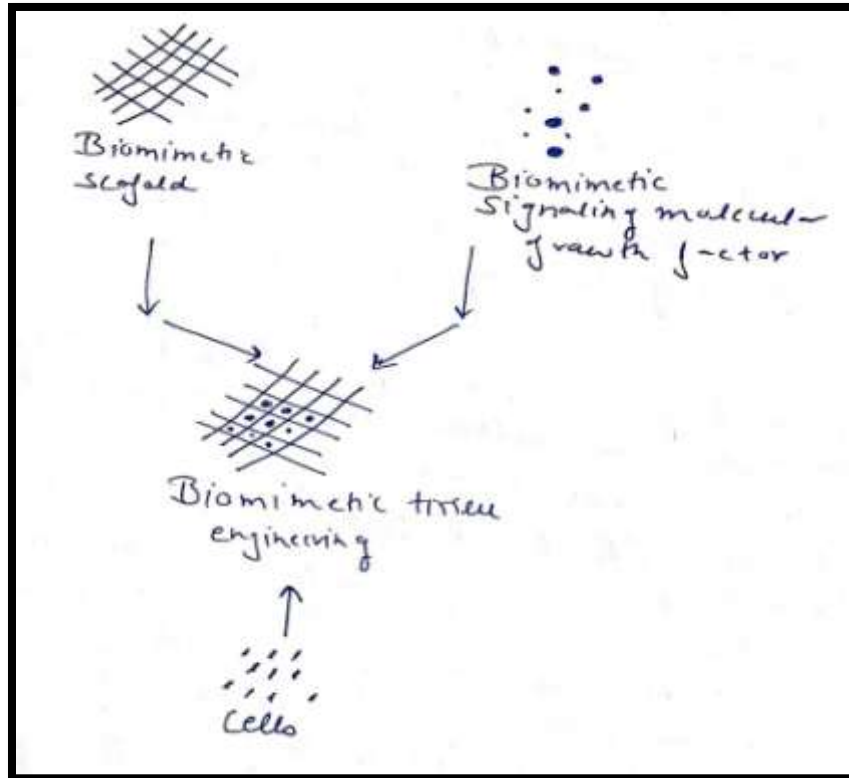 Biomimetic
scafold
Biomimetic
Signaling molecular
growth factor
Biomimetic tissue
engineering
Cells